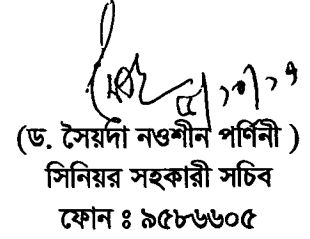 (ড. সৈয়দা নওশীন পর্ণিনী )
সিনিয়র সহকারী সচিব
ফোন ঃ ৯৫৮৬৬০৫